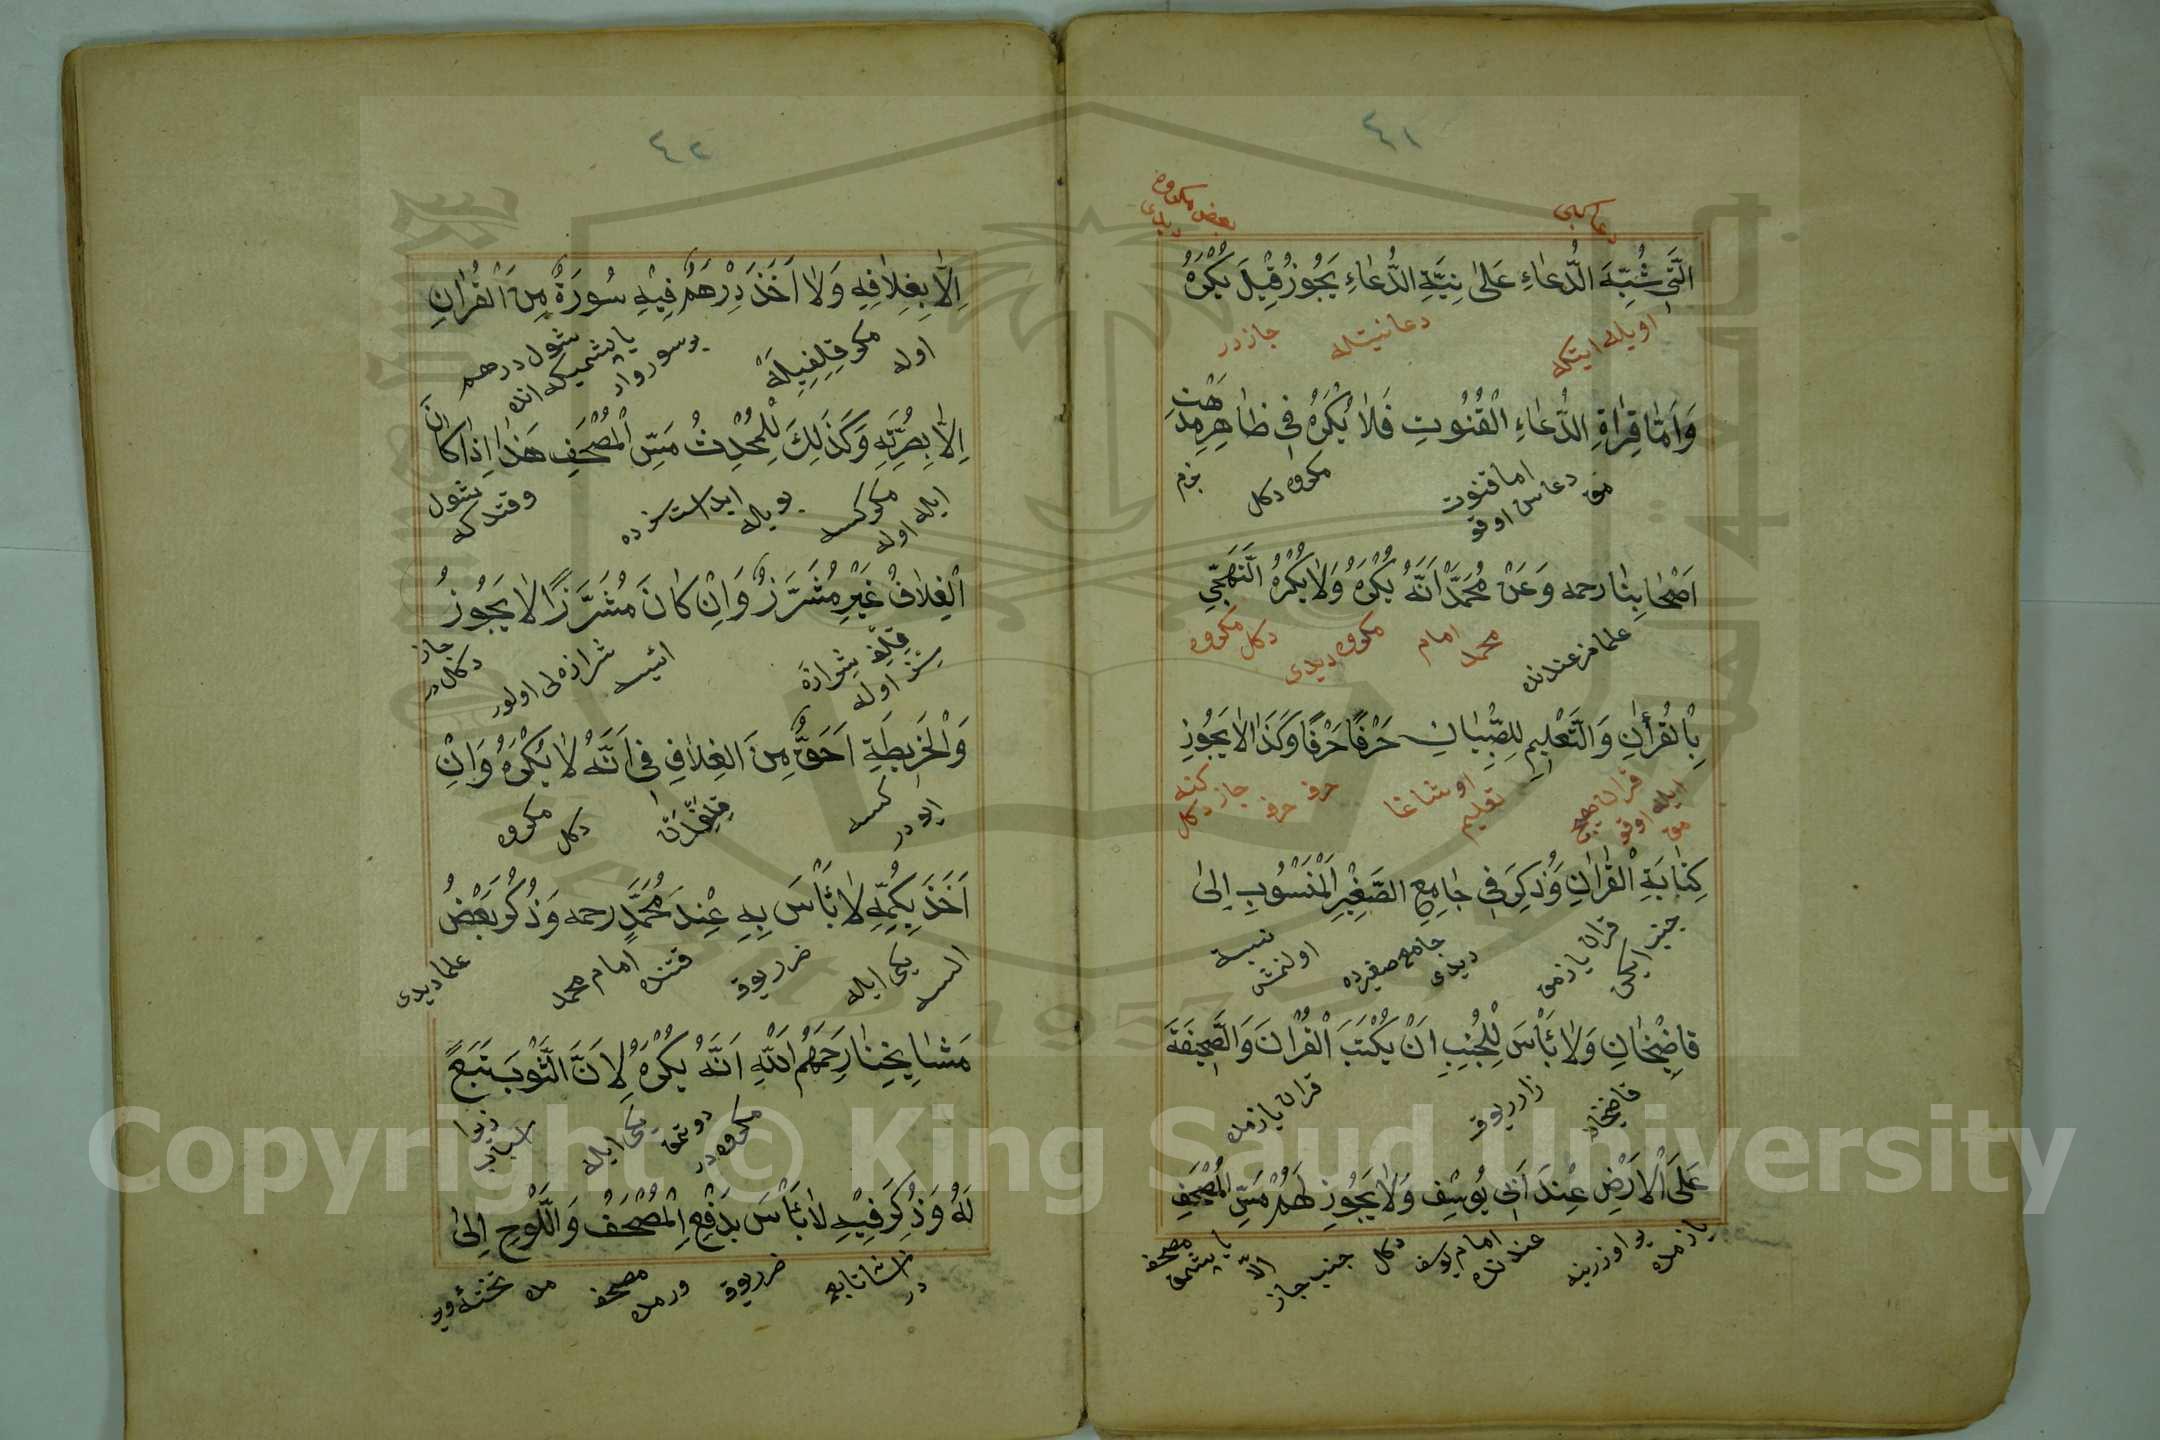 ٤١
دعا كبى
بعض مكروه ديدى
الَّتِى شُبِّهَ الدُّعَاءِ عَلىٰ نِيَّةِ الدُّعَاءِ يَجُوزُ قِيْلَ يُكْرَهُ
اويله ايتكه دعا نيتيله جازدر
وَاَمَّا قِرٰاةِ الدُّعَاءِ الْقُنُوتِ فَلاٰ يُكْرَهُ فِى ظٰاهِرِ مَذْهَبِ
مق دعاسن اوقو اما قنوت مكروه دكل
اَصْحٰابِنٰا رحمه وَعَنْ مُحَمَّدْ اَنَّهُ يُكْرَهُ وَلاٰ يُكْرَهُ التَّهَجِّى
علمامز عندنده محمد امام مكروه ديدى دكل مكروه
بِالْقُرْأٰنِ وَالتَّعْلِيمِ لِلصِّبْيٰانِ حَرْفًا حَرْفًا وَكَذَا لاٰ يَجُوزِ
ايله مق اوقو قران تعليم اوشاغا حرف حرف جاز دكل
كِتٰابَةِ الْقُرٰانِ وَذُكِرَ فِى جٰامِعِ الصَّغِيْرِ الْمَنْسُوبِ اِلىٰ
جنب ايكى قران يازمق ديدى جامع صغيرده اولنمش نسبة
قٰاضِيْخٰانِ وَلاٰ بَأْسَ لِلْجُنُبِ اَنْ يُكْتَبَ الْقُرْاٰنَ وَالصَّحِيفَةَ
قاضيخان يوقد قران يازمق
عَلَى الْاَرْضِ عِنْدَ اَبِى يُوسُفِ وَلاٰ يَجُوزِ لَهُمْ مَسِّ الْمُصْحَفِ
يازمده ير اوزرينه عندنده امام يوسف دكل جنب جاز الا يابشمق مصحف
٤٢
اِلاّٰ بِغِلاٰفِهِ وَلاٰ اَخَذَ دِرْهَمٌ فِيْهِ سُورَةٌ مِنَ الْقُرْاٰنِ
اوله مكر قلفيله بر سوره وار يابشميكه انده شول درهم
اِلاّٰ بِصُرَّتِهِ وَكَذٰلِكَ لِلْمُحْدِثُ مَسِّ الْمُصْحَفِ هٰذٰا اِذٰا كٰانَ
ايله اوله مكر كسه بويله ابدستسزده وقتده كه شول
الْغِلاٰفُ غَيْرِ مُشَرَّزٌ وَاِنْ كٰانَ مُشَرَّزًا لاٰ يَجُوزُ
قلف شرازه سز اوله ايسه شرازه لى اولور جاز دكلدر
وَالْخَرِيطَةِ اَحَقُّ مِنَ الْغِلاٰفِ فِى اَنَّهُ لاٰ يُكْرَهُ وَاِنْ
ايودر كسه قلفدن دكل مكروه
اَخَذَ بِكُمِّهِ لاٰ بَأْسَ بِهِ عِنْدَ مُحَمَّدٍ رحمه وَذُكِرَ بَعْضُ
السه يكى ايله ضرر يوق قتنده امام محمد علما ديدى
مَشٰايِخِنٰا رَحِمَهُمُ اللّٰهِ اَنَّهُ يُكْرَهُ لِاَنَّ الثَّوْبَ تَبَعٌ
مكروهدر دوتمق يكى ايله زيرا اسباب
لَهُ وَذُكِرَ فِيْهِ لاٰ بَأْسَ بِدَفْعِ الْمُصْحَفْ وَاللَّوْحِ اِلىٰ
در تابع ضرر يوق ورمده مصحف
Copyright © King Saud University
1957